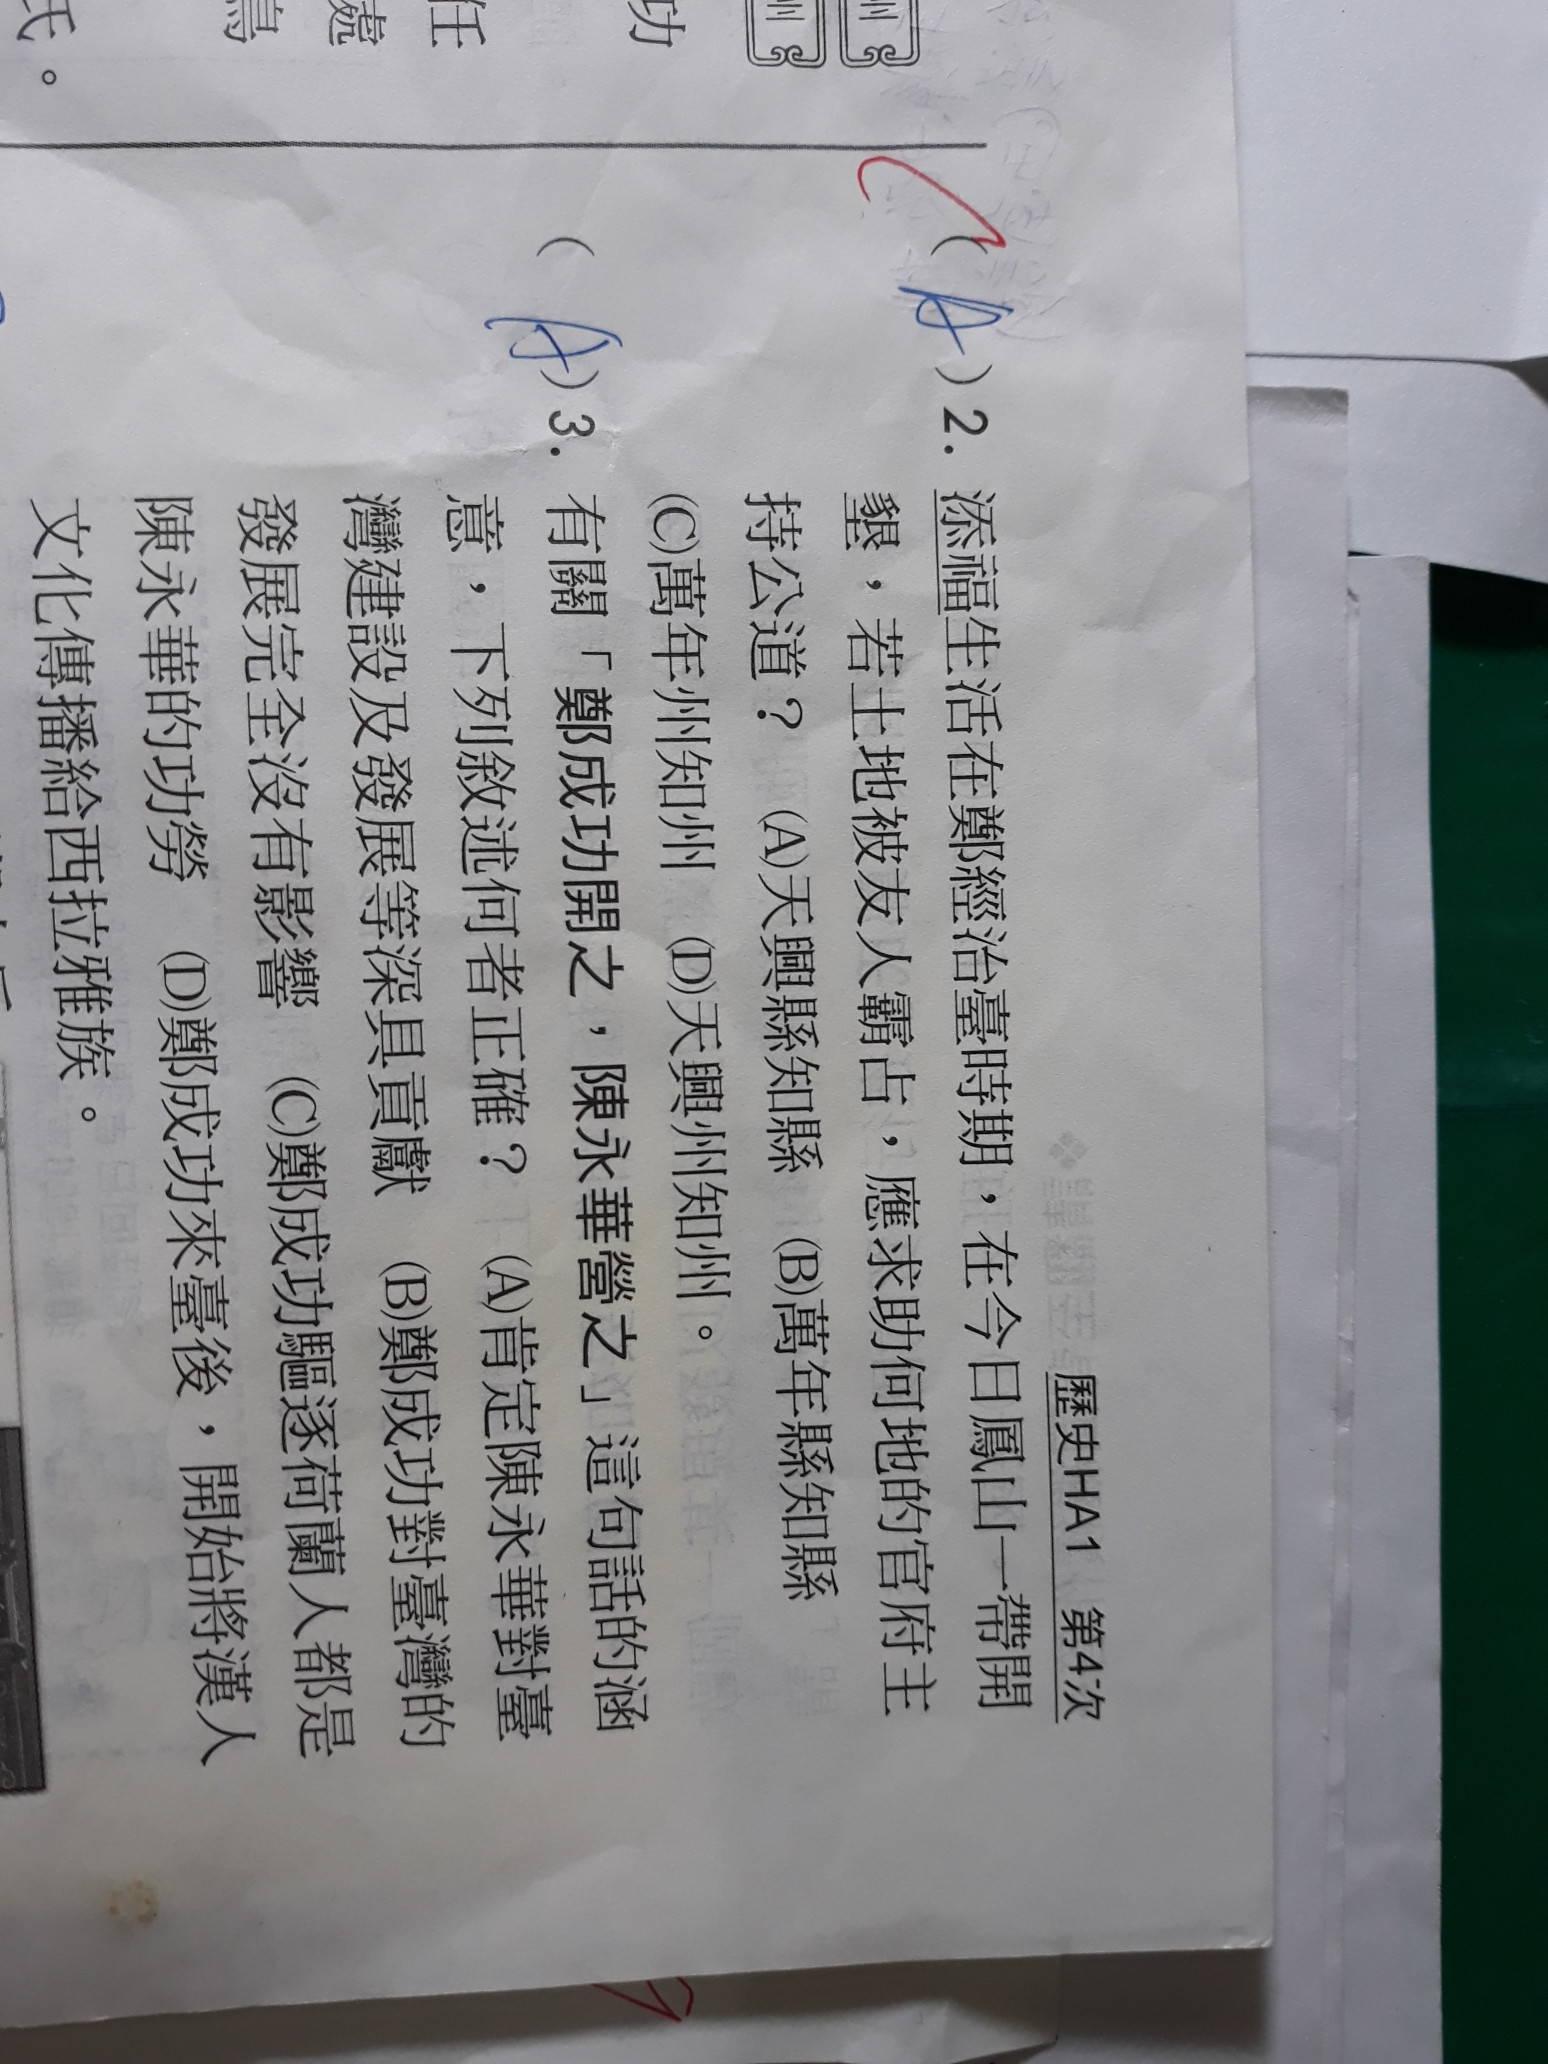 歷史HA1 第4次
( A )2. 添福生活在鄭經治臺時期，在今日鳳山一帶開
墾，若土地被友人霸占，應求助何地的官府主
持公道？ (A)天興縣知縣 (B)萬年縣知縣
(C)萬年州知州 (D)天興州知州。
( A )3. 有關「鄭成功開之，陳永華營之」這句話的涵
意，下列敘述何者正確？ (A)肯定陳永華對臺
灣建設及發展等深具貢獻 (B)鄭成功對臺灣的
發展完全沒有影響 (C)鄭成功驅逐荷蘭人都是
陳永華的功勞 (D)鄭成功來臺後，開始將漢人
文化傳播給西拉雅族。
州
州
功
任
處
氏。